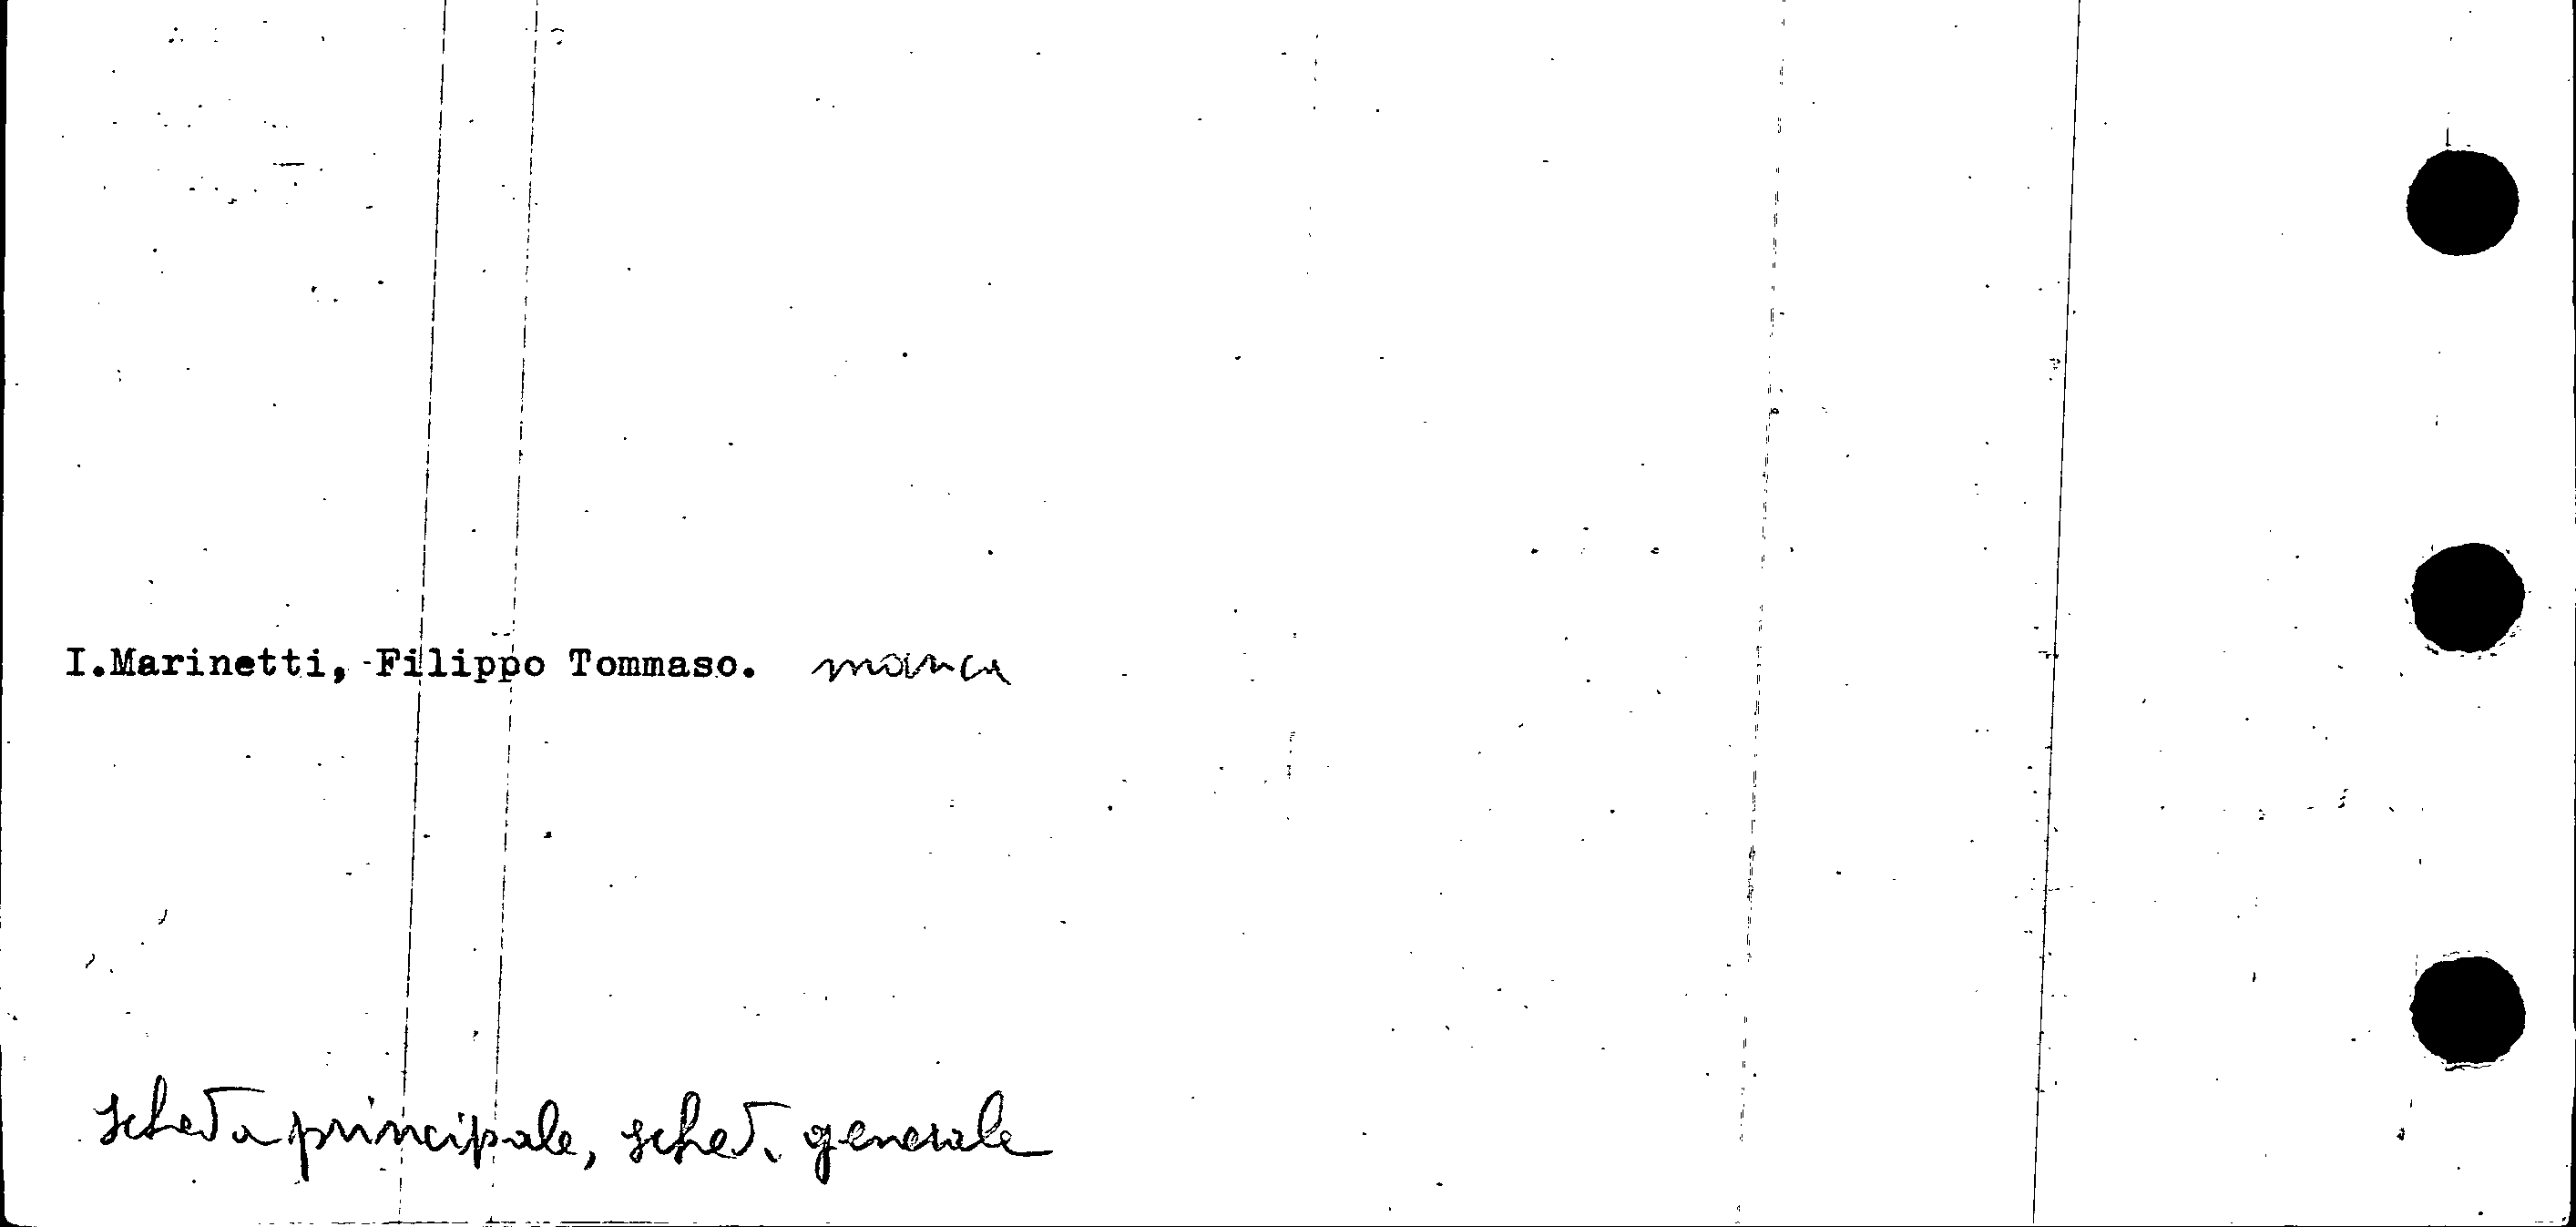 I.Marinetti, Filippo Tommaso. manca
scheda principale, sched. generale